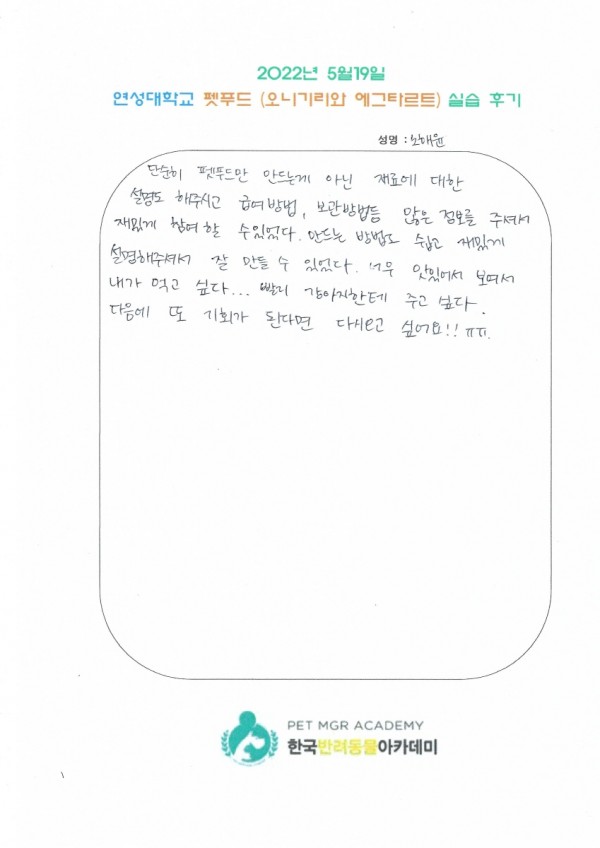 2022년 5월19일
연성대학교 펫푸드 (오니기리와 에그타르트) 실습 후기
성명 : 노해윤
단순히 펫푸드만 만드는게 아닌 재료에 대한
설명도 해주시고 급여방법, 보관방법등 많은 정보를 주셔서
재밌게 참여할 수있었다. 만드는 방법도 쉽고 재밌게
설명해주셔서 잘 만들 수 있었다. 너무 맛있어서 보여서
내가 먹고 싶다... 빨리 강아지한테 주고 싶다.
다음에 또 기회가 된다면 다시오고 싶어요!! ㅠㅠ.
PET MGR ACADEMY
한국반려동물아카데미